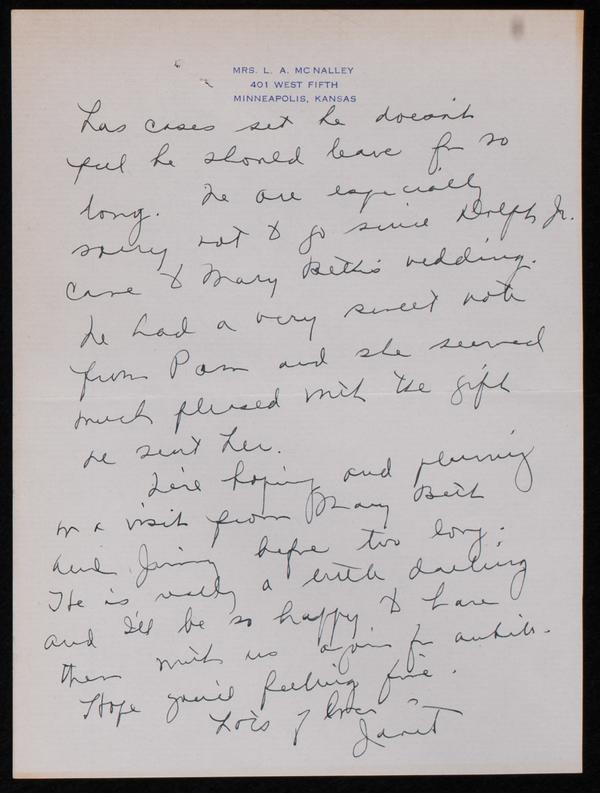 MRS. L. A. MCNALLEY
401 WEST FIFTH
MINNEAPOLIS, KANSAS
has cases set he doesn't
feel he should leave for so
long. We are especially
sorry not to go since Dolph Jr.
came to Mary Beth's wedding.
We had a very sweet note
from Pam and she seemed
much pleased with the gift
we sent her.
We're hoping and planning
on a visit from Mary Beth
and Jimmy before too long.
He is really a little darling
and I'll be so happy to have
them with us again for awhile.
Hope you're feeling fine.
Lots of love -
Janet